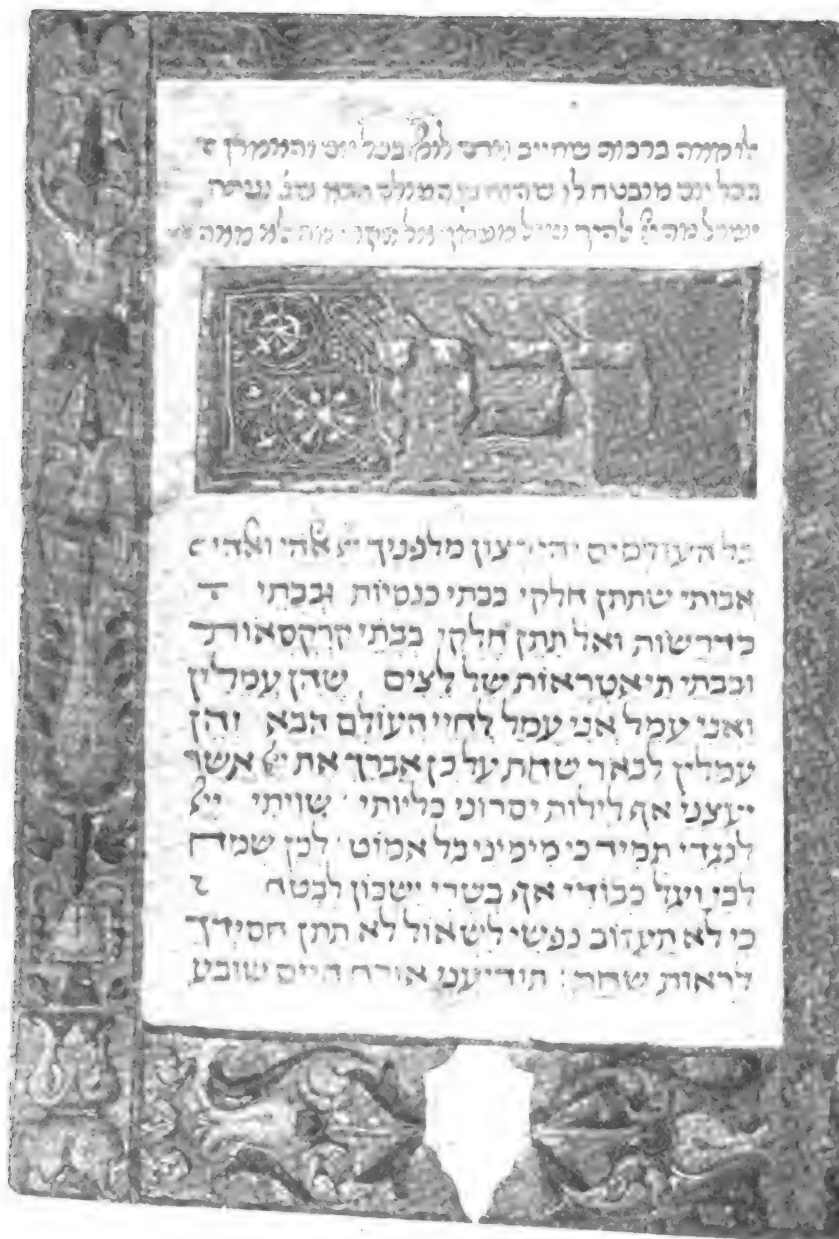 מאה ברכות שחייב אדם לומ׳ בכל יום והאומרן
בכל יום מובטח לו שהוא בן העולם הבא שנ׳
ישראל מה יי׳ אל תקרי מה אלא מאה
רבון
כל העולמים יהי רצון מלפניך יי׳ אהי ואהי
אבותי שתתן חלקי בבתי כנסיות ובבתי
מדרשות ואל תתן חלקי בבתי קרקסאות
ובבתי תיאטראות של לצים שהן עמלין
ואני עמל אני עמל לחיי העולם הבא והן
עמלין לבאר שחת על כן אברך את יי׳ אשר
יעצני אף לילות יסרוני כליותי שויתי יי׳
לנגדי תמיד כי מימיני בל אמוט לכן שמח
לבי ויגל כבודי אף בשרי ישכון לבטח
כי לא תעזוב נפשי לשאול לא תתן חסידך
לראות שחת : תודיעני אורח חיים שובע